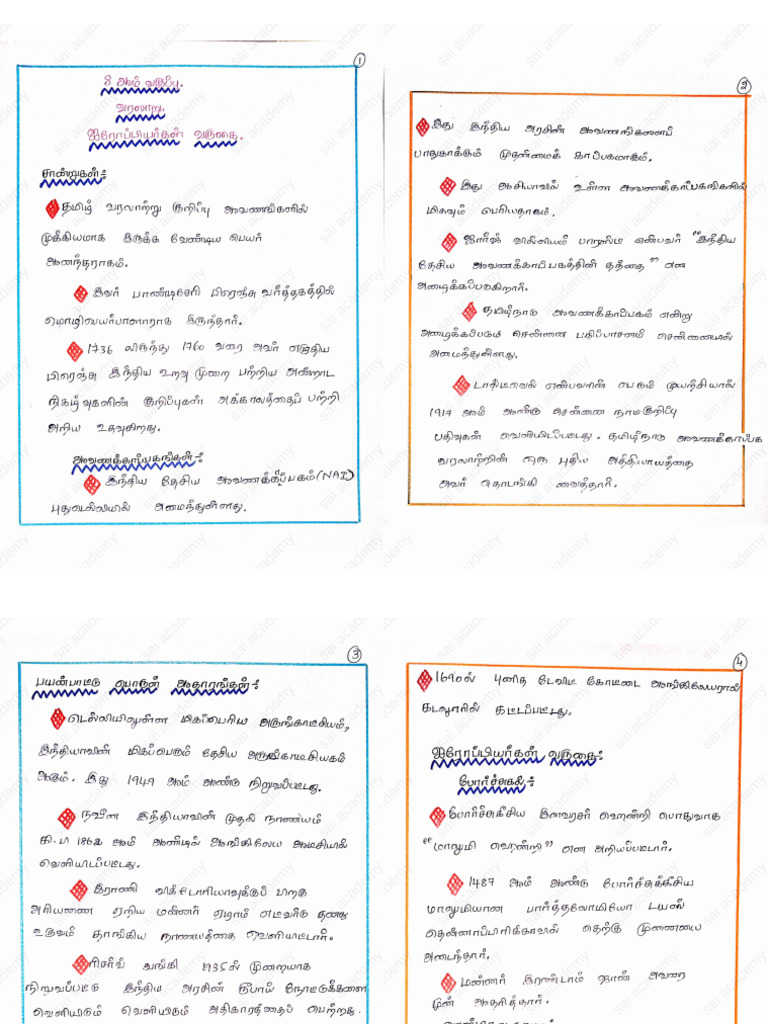 1
8 ஆம் வகுப்பு.
வரலாறு.
ஐரோப்பியர்கள் வருகை.
சான்றுகள்:-
தமிழ் வரலாற்று குறிப்பு ஆவணங்களில்
முக்கியமாக இருக்க வேண்டிய பெயர்
ஆனந்தராகம்.
இவர் பாண்டிசேரி பிரெஞ்சு வர்த்தகத்தில்
மொழிபெயர்பாளாராக இருந்தார்.
1736 லிருந்து 1760 வரை அவர் எழுதிய
பிரெஞ்சு இந்திய உறவு முறை பற்றிய அன்றாட
நிகழ்வுகளின் குறிப்புகள் அக்காலத்தைப் பற்றி
அறிய உதவுகிறது.
ஆவணக்காப்பகங்கள்:-
இந்திய தேசிய ஆவணக்காப்பகம் (NAI)
புதுடெல்லியில் அமைந்துள்ளது.
2
இது இந்திய அரசின் ஆவணங்களைப்
பாதுகாக்கும் முதன்மைக் காப்பகமாகும்.
இது ஆசியாவில் உள்ள ஆவணக்காப்பகங்களில்
மிகவும் பெரியதாகம்.
ஜார்ஜ் வில்லியம் பாரஸ்ட் என்பவர் "இந்திய
தேசிய ஆவணக்காப்பகத்தின் தந்தை" என
அழைக்கப்படுகிறார்.
தமிழ்நாடு ஆவணக்காப்பகம் என்று
அழைக்கப்படும் சென்னை பதிப்பாசனம் சென்னையில்
அமைந்துள்ளது.
டாட்வெல் என்பவரின் பெரும் முயற்சியால்
1917 ஆம் ஆண்டு சென்னை நாட்குறிப்பு
பதிவுகள் வெளியிடப்பட்டது. தமிழ்நாடு ஆவணக்காப்பக
வரலாற்றின் ஒரு புதிய அத்தியாயத்தை
அவர் தொடங்கி வைத்தார்.
3
பயன்பாட்டு பொருள் ஆதாரங்கள்:-
டெல்லியிலுள்ள மிகப்பெரிய அருங்காட்சியம்,
இந்தியாவின் மிகப்பெரும் தேசிய அருங்காட்சியகம்
ஆகும். இது 1949 ஆம் ஆண்டு நிறுவப்பட்டது.
நவீன இந்தியாவின் முதல் நாணயம்
கி.பி 1862 ஆம் ஆண்டில் ஆங்கிலேய ஆட்சியில்
வெளியிடப்பட்டது.
இராணி விக்டோரியாவுக்குப் பிறகு
அரியணை ஏறிய மன்னர் ஏழாம் எட்வர்டு தனது
உருவம் தாங்கிய நாணயத்தை வெளியிட்டார்.
ரிசர்வ் வங்கி 1935ல் முறையாக
நிறுவப்பட்டு இந்திய அரசின் ரூபாய் நோட்டுக்களை
வெளியிடும் வெளியிடும் அதிகாரத்தைப் பெற்றது.
4
1690ல் புனித டேவிட் கோட்டை ஆங்கிலேயரால்
கடலூரில் கட்டப்பட்டது.
ஐரோப்பியர்கள் வருகை:-
போர்ச்சுகல்:-
போர்ச்சுகீசிய இளவரசர் ஹென்றி பொதுவாக
"மாலுமி ஹென்றி" என அறியப்பட்டார்.
1487 ஆம் ஆண்டு போர்ச்சுக்கீசிய
மாலுமியான பார்த்தலோமியோ டயஸ்
தென்னாப்பிரிக்காவில் தெற்கு முனையை
அடைந்தார்.
மன்னர் இரண்டாம் ஜான் அவரை
sai academy